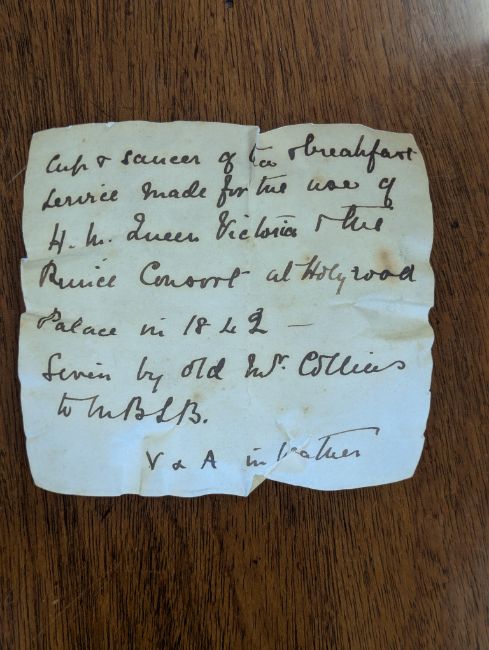 Cup & saucer of tea & breakfast
service made for the use of
H. M. Queen Victoria & the
Prince Consort at Holyrood
Palace in 1842 —
Given by old Mr. Collins
to MBLB.
V & A in